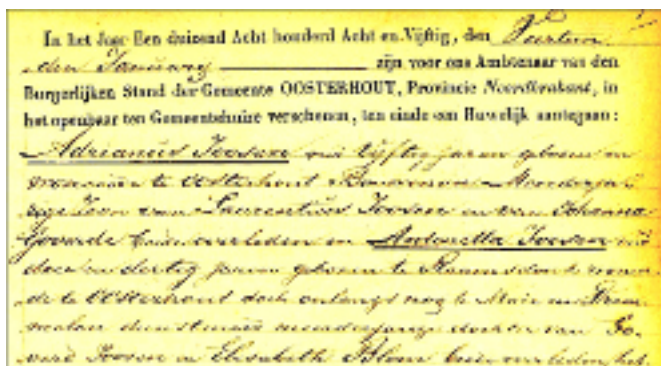 In het Jaar Een duizend Acht honderd Acht en Vijftig, den Veertien
den January zijn voor ons Ambtenaar van den
Burgerlijken Stand der Gemeente OOSTERHOUT, Provincie Noordbrabant, in
het openbaar ten Gemeentehuize verschenen, ten einde een Huwelijk aantegaan:
Adrianus Joosen oud vijftig jaren geboren en
te Oosterhout Bouwman Meerderja
rige Zoon van Laurentius Joosen en van Johanna
beide overleden en Antonetta Joosen oud
drie en dertig jaren geboren te Raamsdonk woonen
de te Oosterhout doch onlangs nog te Made en Drim
melen dienstmeid meerderjarige dochter van Go
verd Joosen en Elisabeth Blom beide overleden, het